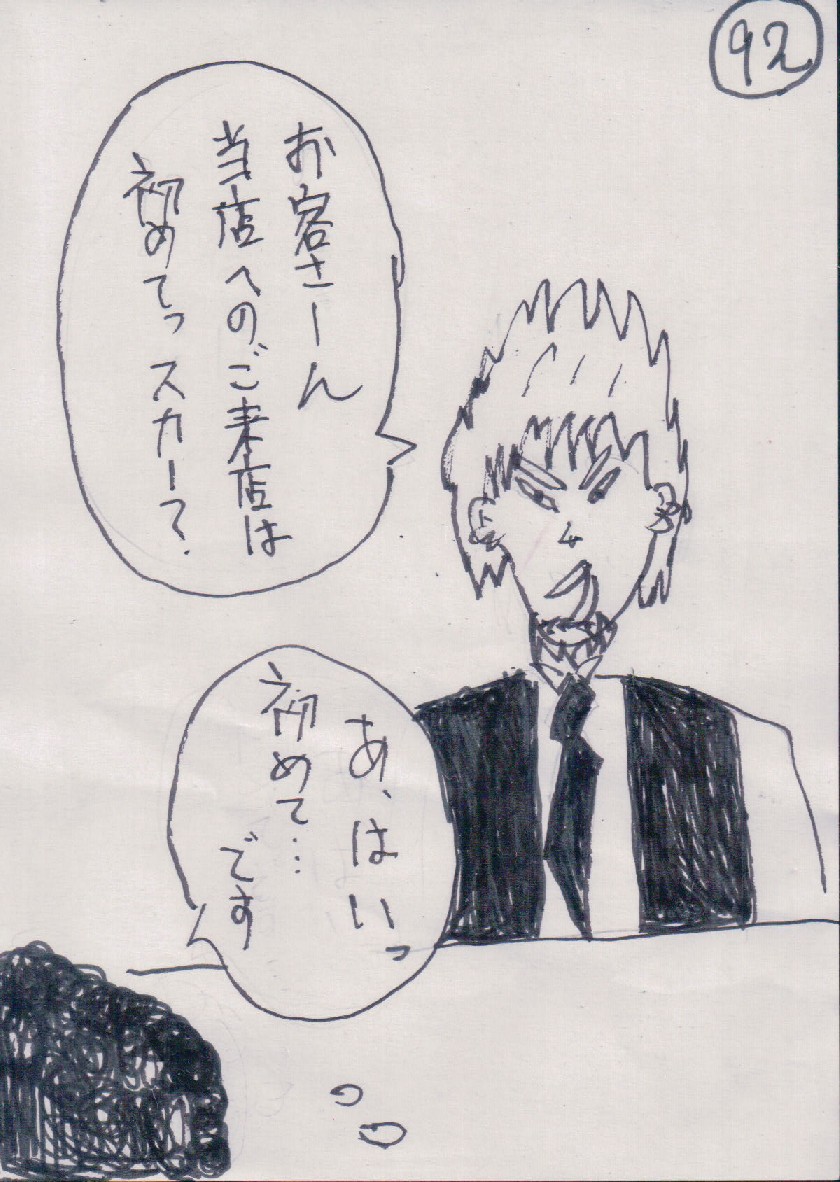 92
お客さーん
当店へのご来店は
初めてっスカーて?
あ、はいっ
初めて…
です